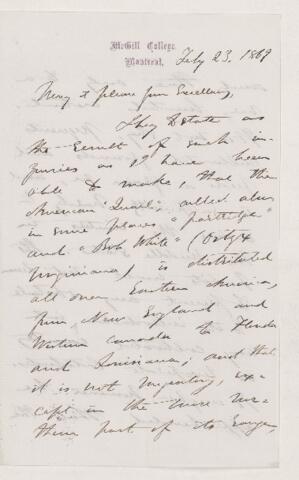 McGill College,
Montreal,
Feby 23. 1869
May it please your Excellency,
I beg to state as
the result of such in-
quiries as I have been
able to make, that the
American "Quail", called also
in some places "partridge"
and "Bob White" (Ortyx
Virginiana) is distributed
all over Eastern America,
from New England and
Western Canada to Florida
and Louisiana; and that
it is not migratory, ex-
cept in the more nor-
thern part of its range,